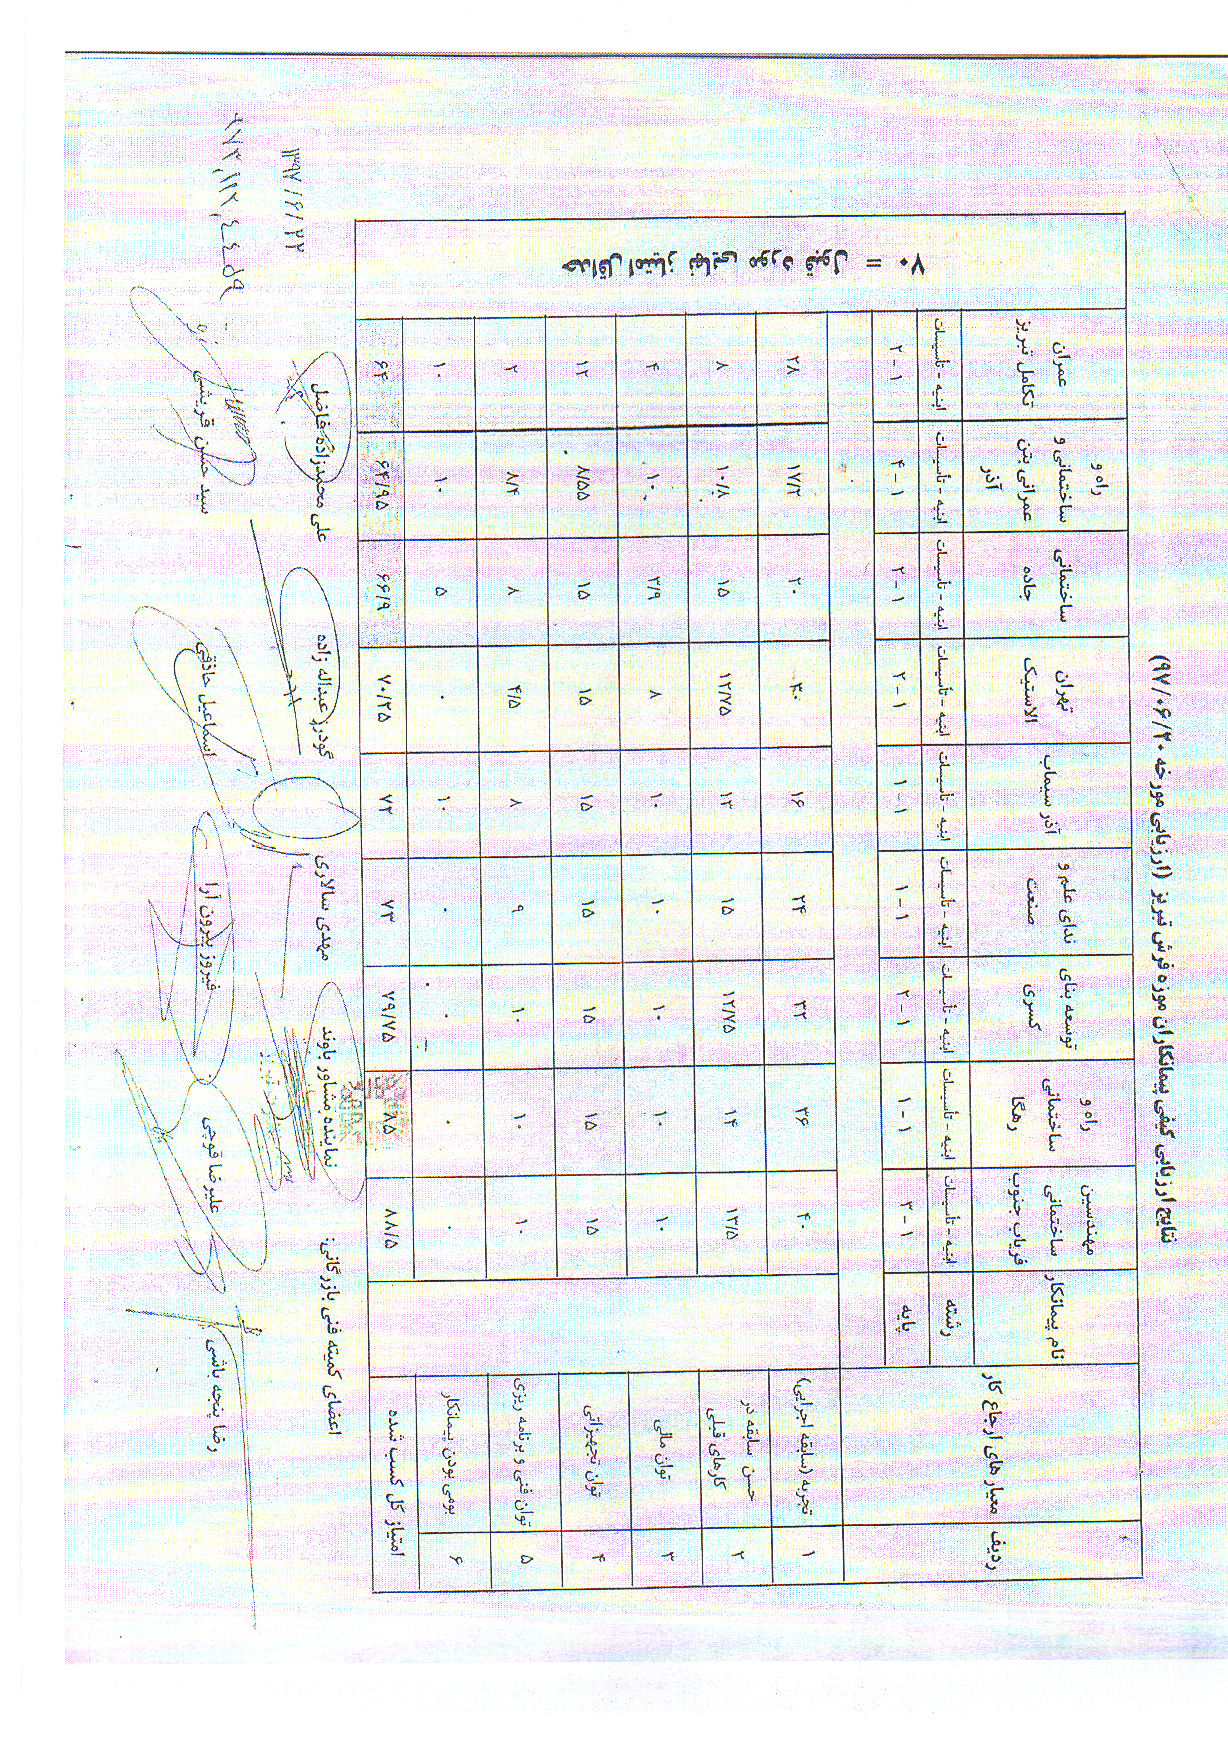 نتایج ارزیابی کیفی پیمانکاران موزه فرش تبریز (ارزیابی مورخه ۹۷/۰۶/۲۰)
ردیف معیار های ارجاع کار نام پیمانکار مهندسین ساختمانی فریاب جنوب راه و ساختمانی رهگا توسعه بنای کسری ندای علم و صنعت آذر سیماب تهران الاستیک ساختمانی جاده راه و ساختمانی و عمرانی بتن آذر عمران تکامل تبریز حداقل امتیاز نهایی مورد قبول = ۷۰
رشته ابنیه - تأسیسات ابنیه - تأسیسات ابنیه - تأسیسات ابنیه - تأسیسات ابنیه - تأسیسات ابنیه - تأسیسات ابنیه - تأسیسات ابنیه - تأسیسات ابنیه - تأسیسات
پایه ۱ - ۳ ۱ - ۱ ۱ - ۲ ۱ - ۱ ۱ - ۱ ۱ - ۲ ۱ - ۲ ۱ - ۴ ۱ - ۲
۱ تجربه (سابقه اجرایی) ۴۰ ۳۶ ۳۲ ۲۴ ۱۶ ۳۰ ۲۰ ۱۷/۲ ۲۸
۲ حسن سابقه در کارهای قبلی ۱۳/۵ ۱۴ ۱۲/۷۵ ۱۵ ۱۳ ۱۲/۷۵ ۱۵ ۱۰/۸ ۸
۳ توان مالی ۱۰ ۱۰ ۱۰ ۱۰ ۱۰ ۸ ۳/۹ ۱۰ ۴
۴ توان تجهیزاتی ۱۵ ۱۵ ۱۵ ۱۵ ۱۵ ۱۵ ۱۵ ۸/۵۵ ۱۲
۵ توان فنی و برنامه ریزی ۱۰ ۱۰ ۱۰ ۹ ۸ ۴/۵ ۸ ۸/۴ ۲
۶ بومی بودن پیمانکار ۰ ۰ ۰ ۰ ۱۰ ۰ ۵ ۱۰ ۱۰
امتیاز کل کسب شده ۸۸/۵ ۸۵ ۷۹/۷۵ ۷۳ ۷۲ ۷۰/۲۵ ۶۶/۹ ۶۴/۹۵ ۶۴
اعضای کمیته فنی بازرگانی: نماینده مشاور باوند مهدی سالاری گودرز عبداله زاده علی محمدزاده فاضل ۱۳۹۷/۶/۲۲
رضا پنجه باشی علیرضا قوجی فیروز بیرون آرا اسماعیل حاذقی سید حسن قریشی